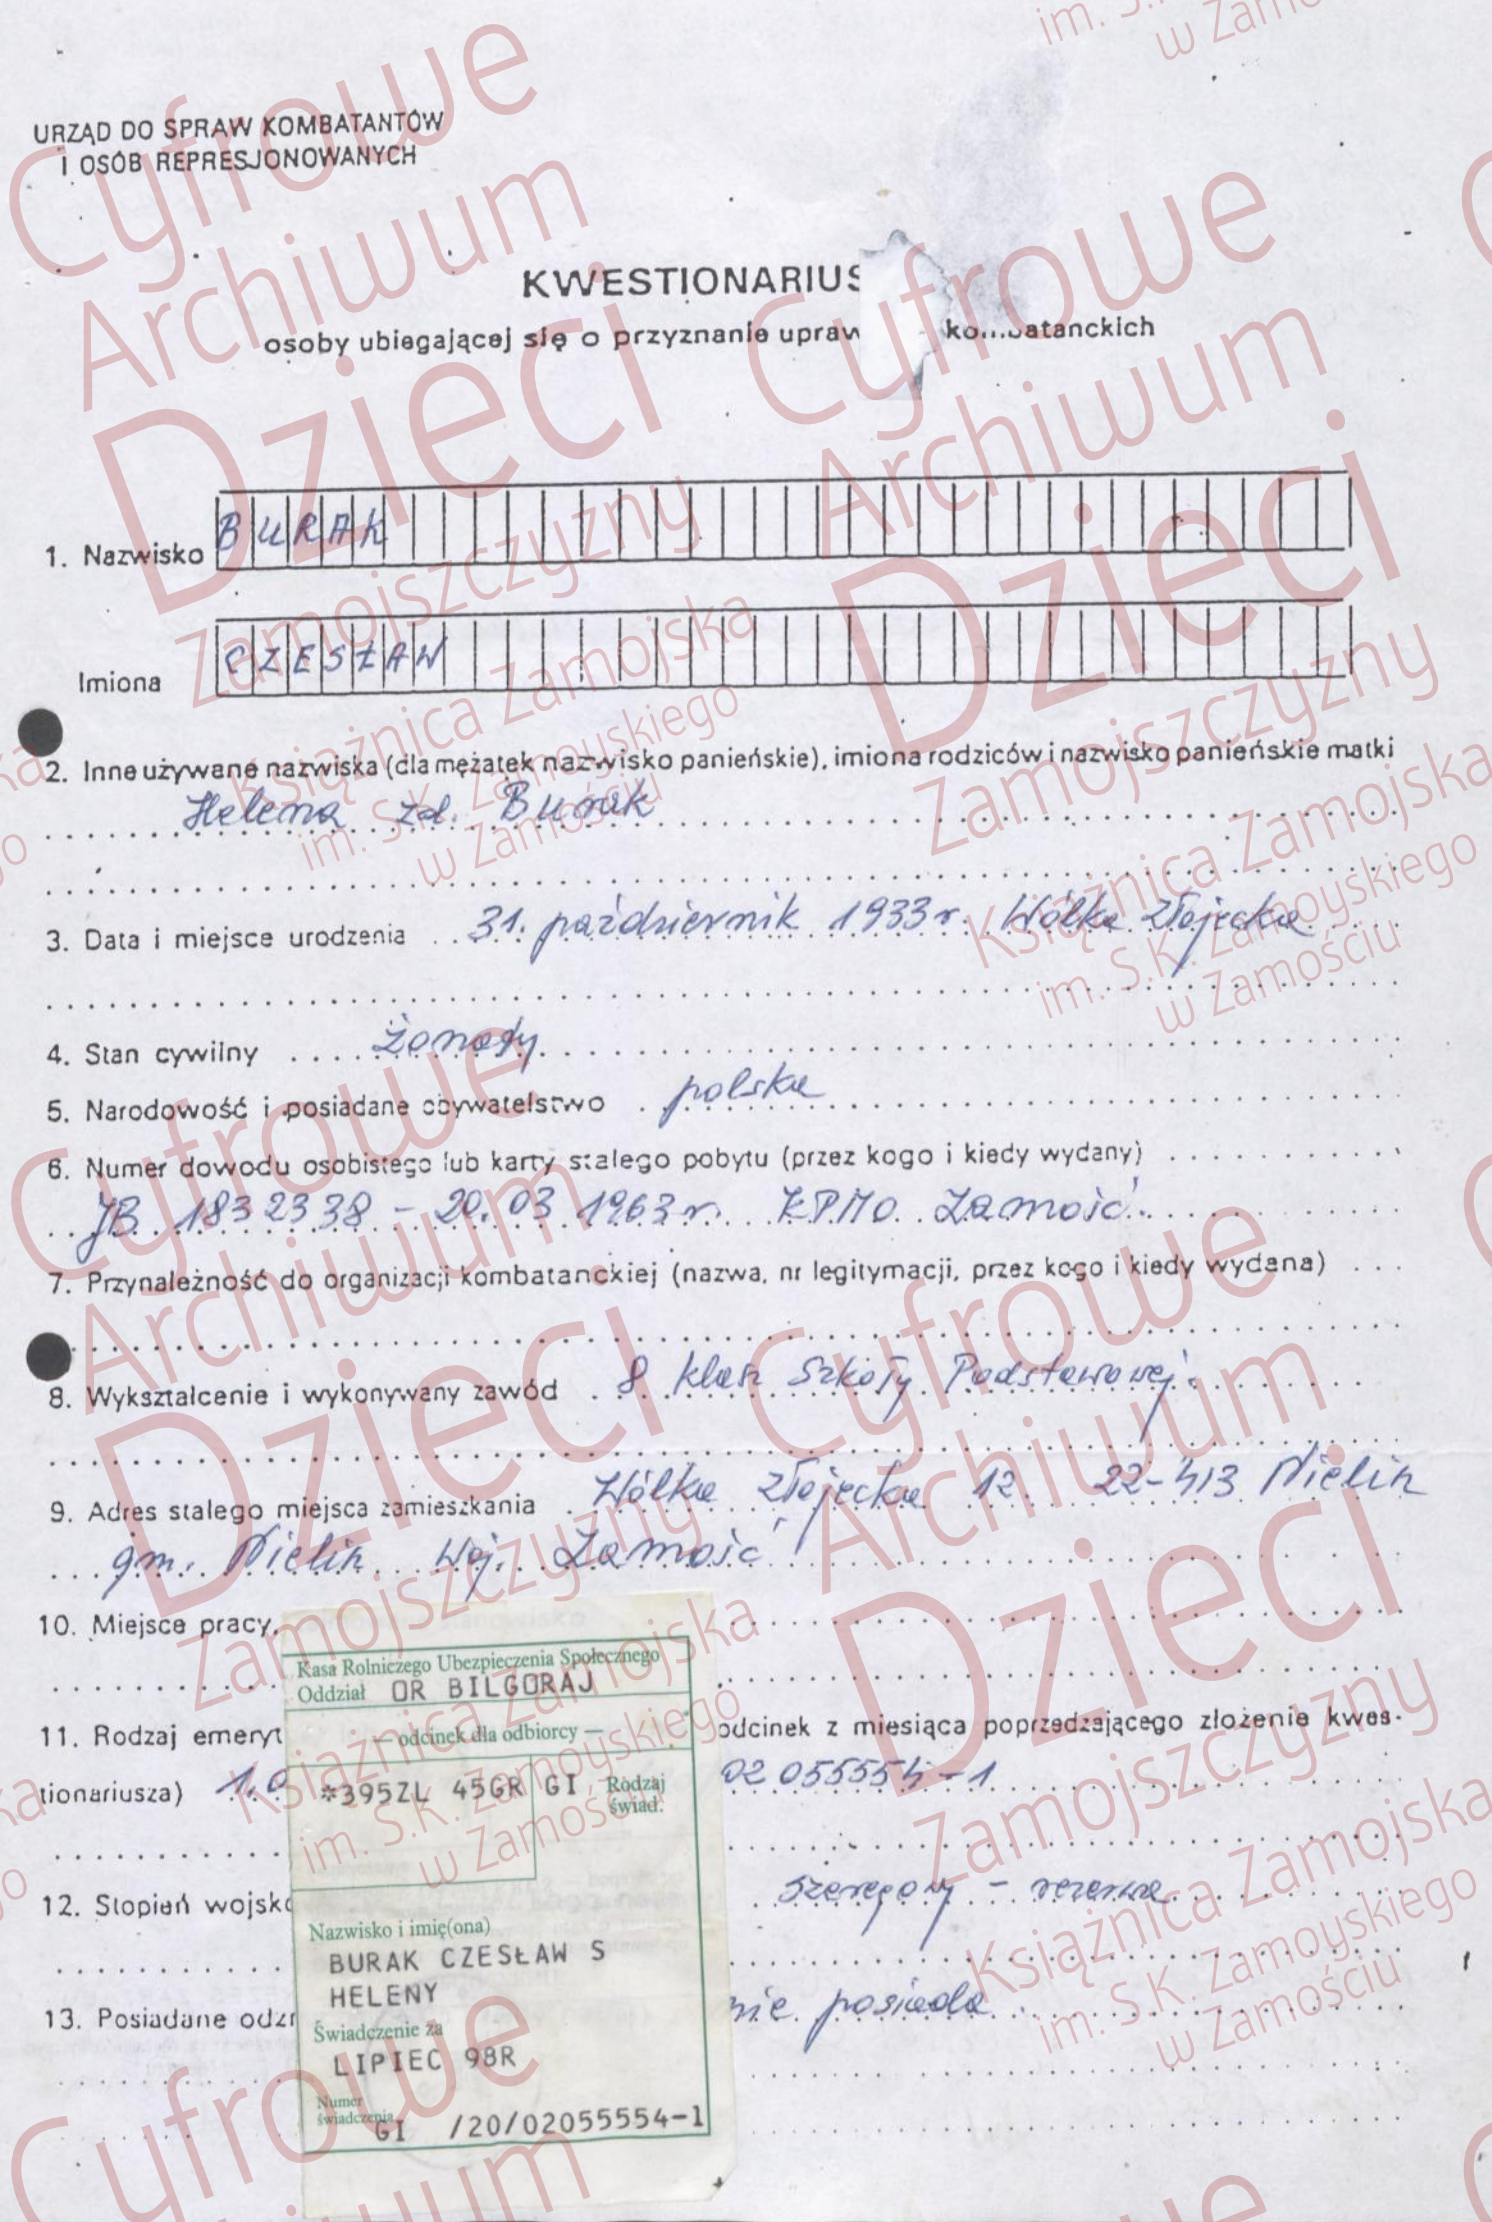 URZĄD DO SPRAW KOMBATANTÓW
I OSÓB REPRESJONOWANYCH
KWESTIONARIUS
osoby ubiegającej się o przyznanie upraw kombatanckich
1. Nazwisko BURAK
Imiona CZESŁAW
2. Inne używane nazwiska (dla mężatek nazwisko panieńskie), imiona rodziców i nazwisko panieńskie matki
Helena zd. Burak
3. Data i miejsce urodzenia 31. październik 1933 r. Wólka Złojecka
4. Stan cywilny Żonaty
5. Narodowość i posiadane obywatelstwo polska
6. Numer dowodu osobistego lub karty stałego pobytu (przez kogo i kiedy wydany)
JB 1832338 - 20.03 1963 r. KPMO Zamość
7. Przynależność do organizacji kombatanckiej (nazwa, nr legitymacji, przez kogo i kiedy wydana)
8. Wykształcenie i wykonywany zawód 8 klas Szkoły Podstawowej
9. Adres stałego miejsca zamieszkania Wólka Złojecka 12 22-413 Nielisz
gm. Nielisz Woj. Zamość
10. Miejsce pracy,
11. Rodzaj emeryt odcinek z miesiąca poprzedzającego złożenie kwes-
tionariusza) 02 055554-1
12. Stopień wojsko szeregowy - rezerwa
13. Posiadane odzn nie posiada
Kasa Rolniczego Ubezpieczenia Społecznego
Oddział OR BILGORAJ
— odcinek dla odbiorcy —
*395ZL 45GR GI Rodzaj świad.
Nazwisko i imię(ona)
BURAK CZESŁAW S
HELENY
Świadczenie za
LIPIEC 98R
Numer świadczenia GI /20/02055554-1
Cyfrowe
Archiwum
Dzieci
Zamojszczyzny
Książnica Zamojska
im. S.K. Zamoyskiego
w Zamościu